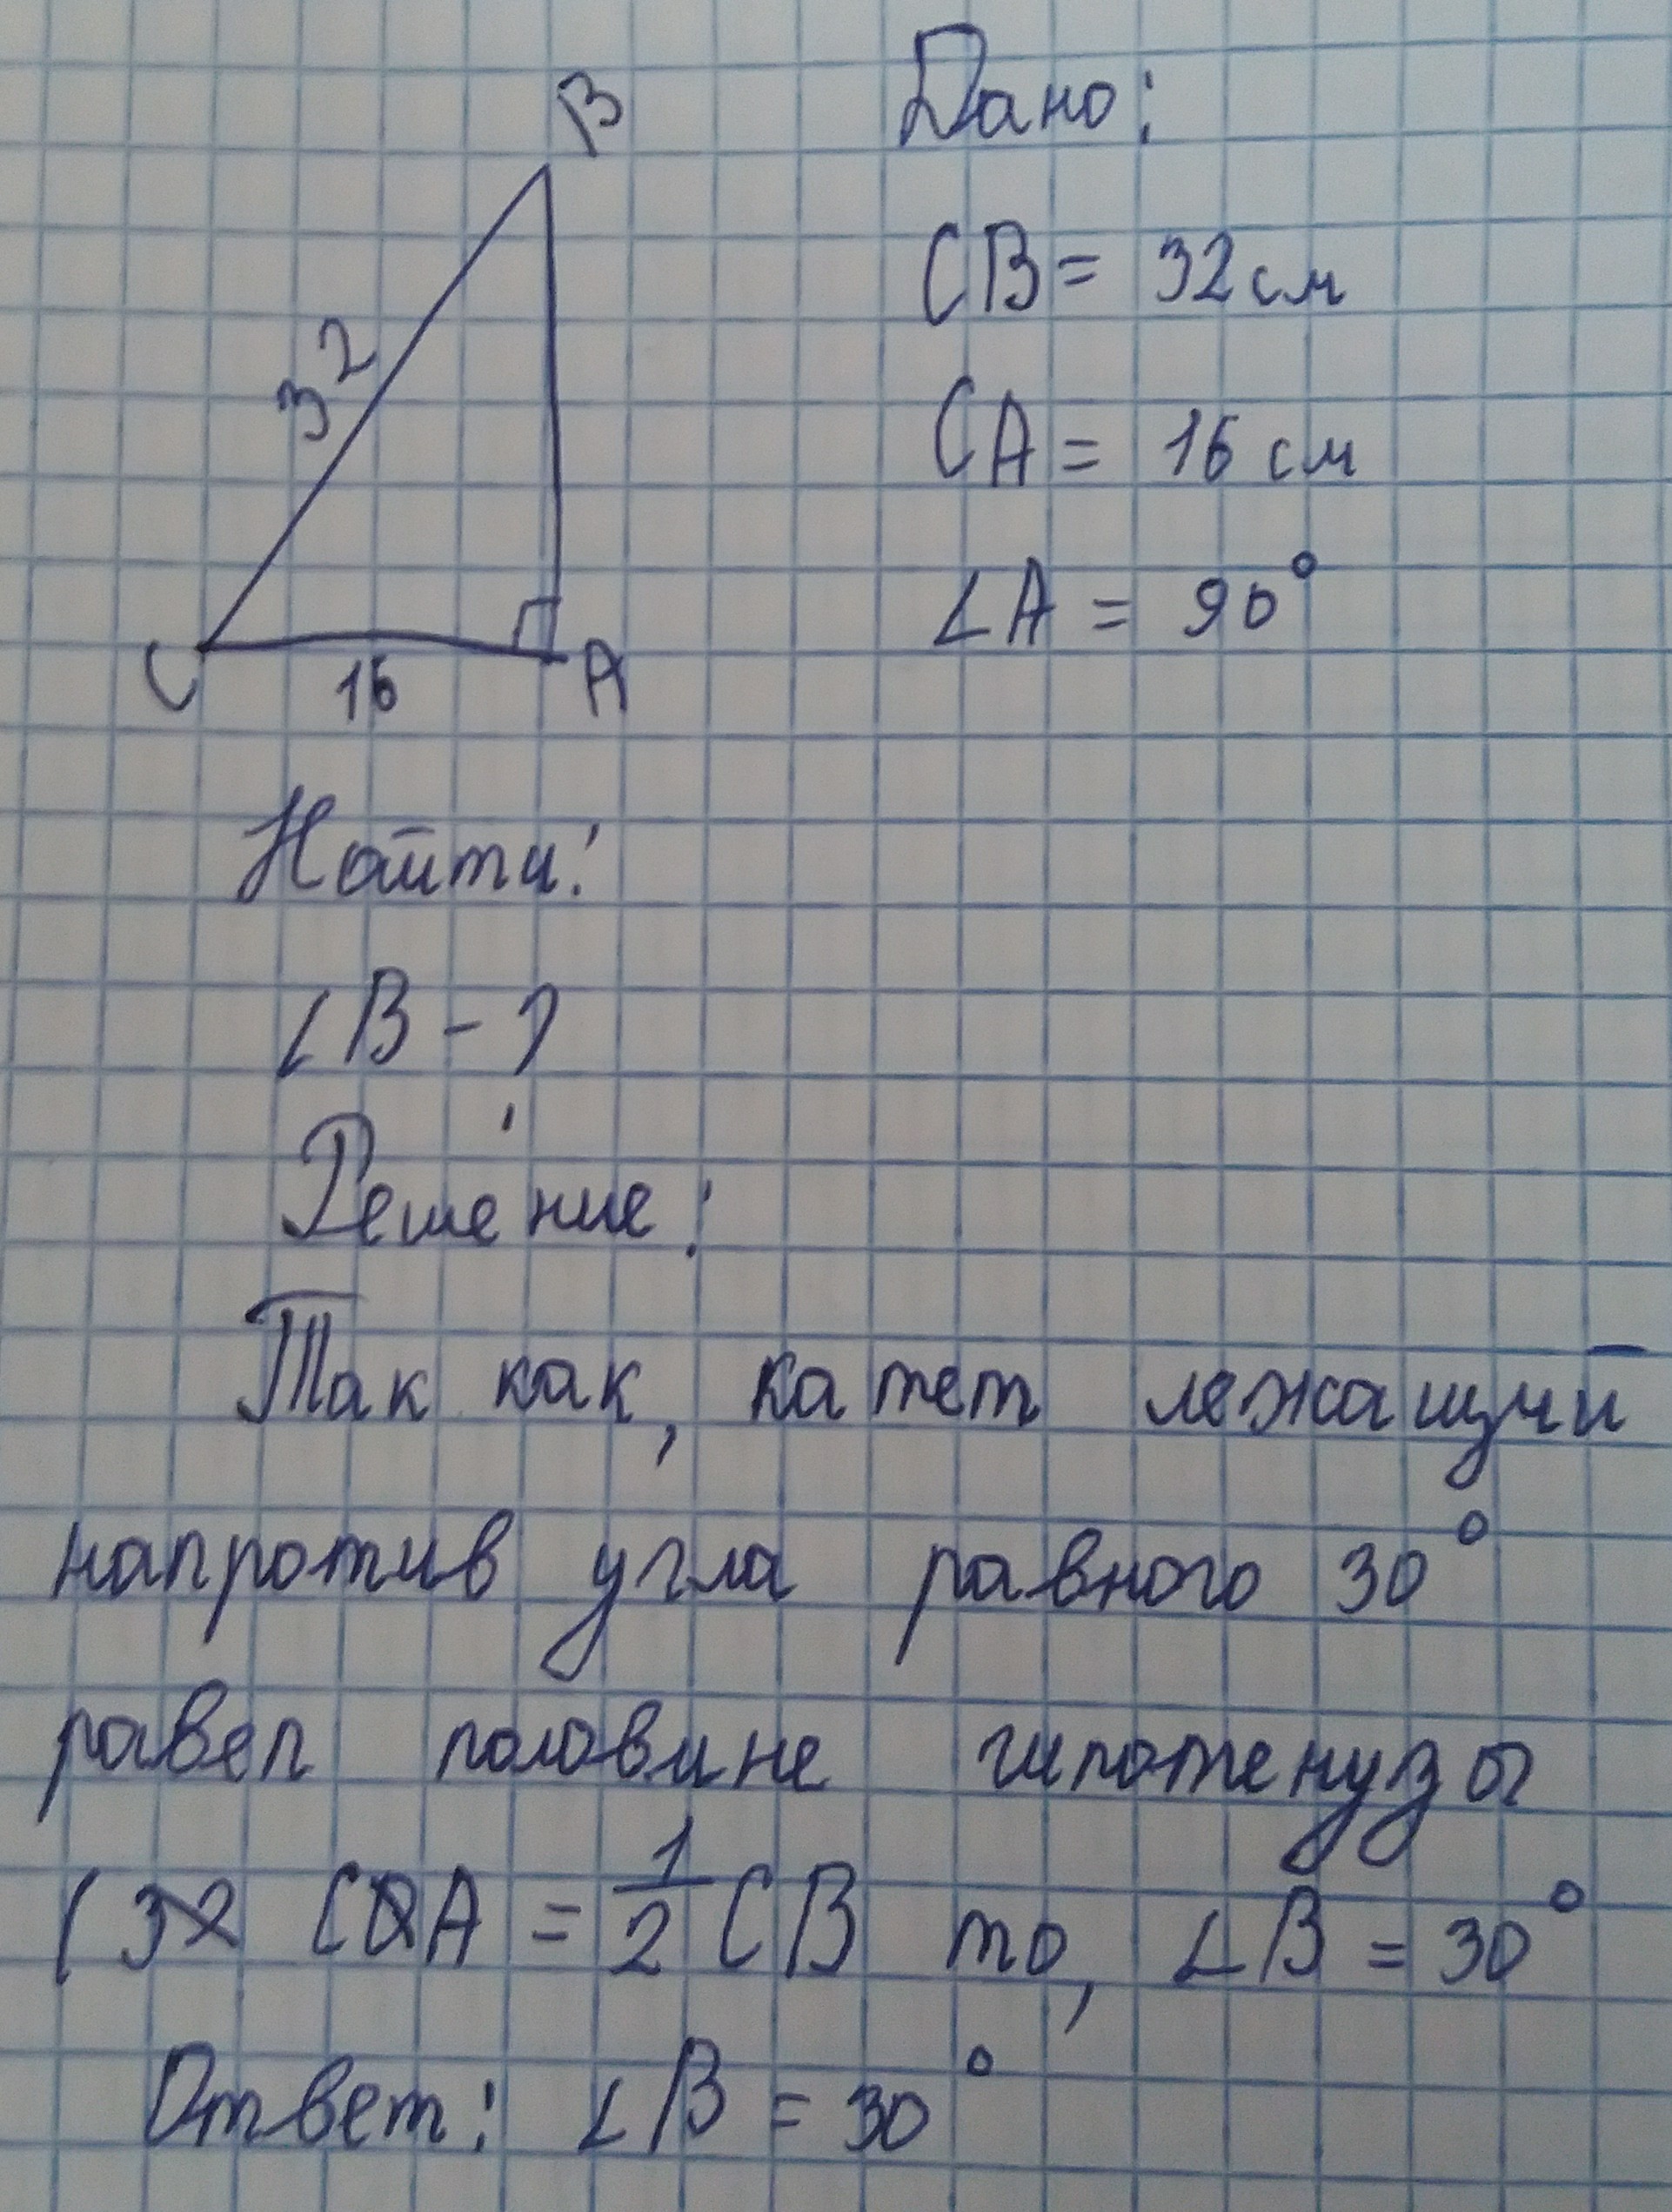 B
32
C
16
A
Дано:
CB = 32 см
CA = 16 см
∠A = 90°
Найти:
∠B - ?
Решение:
Так как, катет лежащий
напротив угла равного 30°
равен половине гипотенузы
CA = 1/2 CB то, ∠B = 30°
Ответ: ∠B = 30°